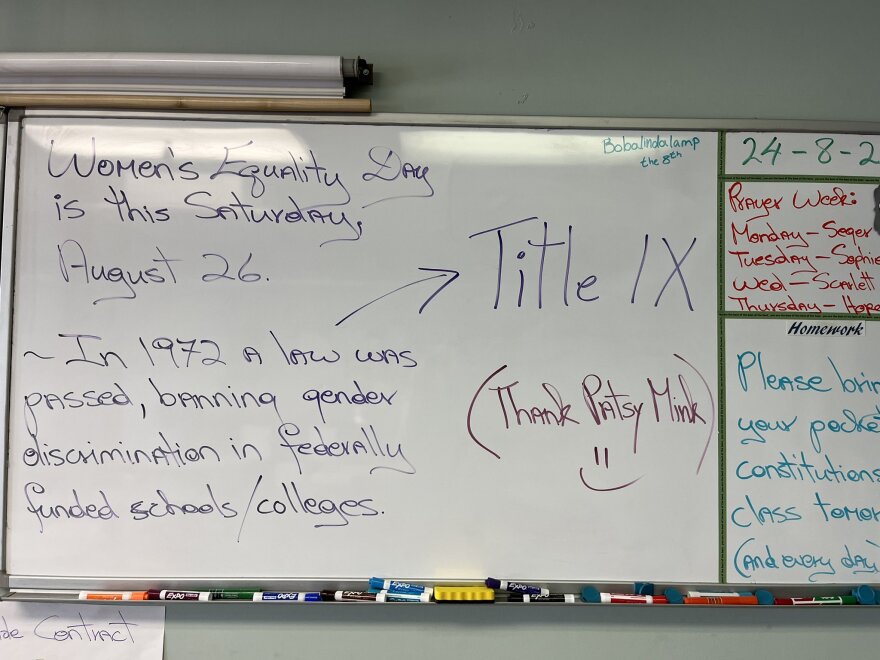 Women's Equality Day
is this Saturday,
August 26.
~ In 1972 a law was
passed, banning gender
discrimination in federally
funded schools/colleges.
Bobalindalamp
the 8th
Title IX
(Thank Patsy Mink)
24-8-2
Prayer Week:
Monday - Seger
Tuesday - Sophie
Wed - Scarlett
Thursday - Hope
Homework
Please brin
your pocket
constitutions
class tomor
(and every day)
EXPO
EXPO
EXPO
EXPO
Contract